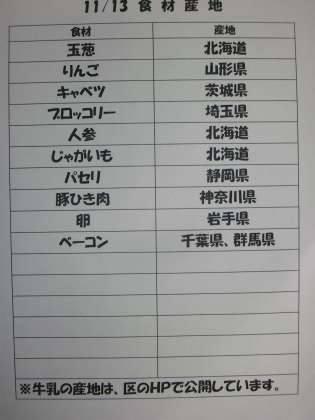 11/13 食材産地
食材 産地
玉葱 北海道
りんご 山形県
キャベツ 茨城県
ブロッコリー 埼玉県
人参 北海道
じゃがいも 北海道
パセリ 静岡県
豚ひき肉 神奈川県
卵 岩手県
ベーコン 千葉県、群馬県
※牛乳の産地は、区のHPで公開しています。